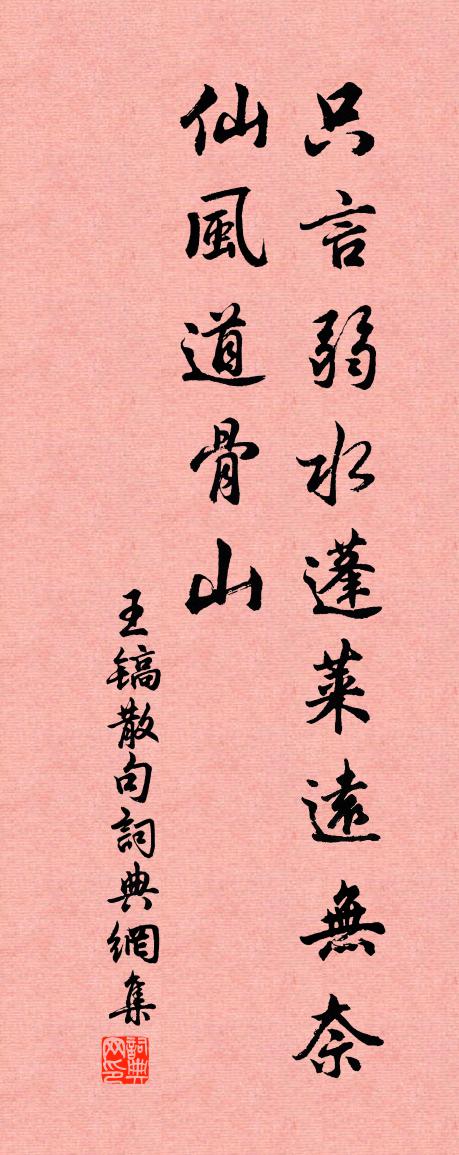 只言弱水蓬莱遠無奈
仙風道骨山
王镐散句詞典網集
詞典
网印